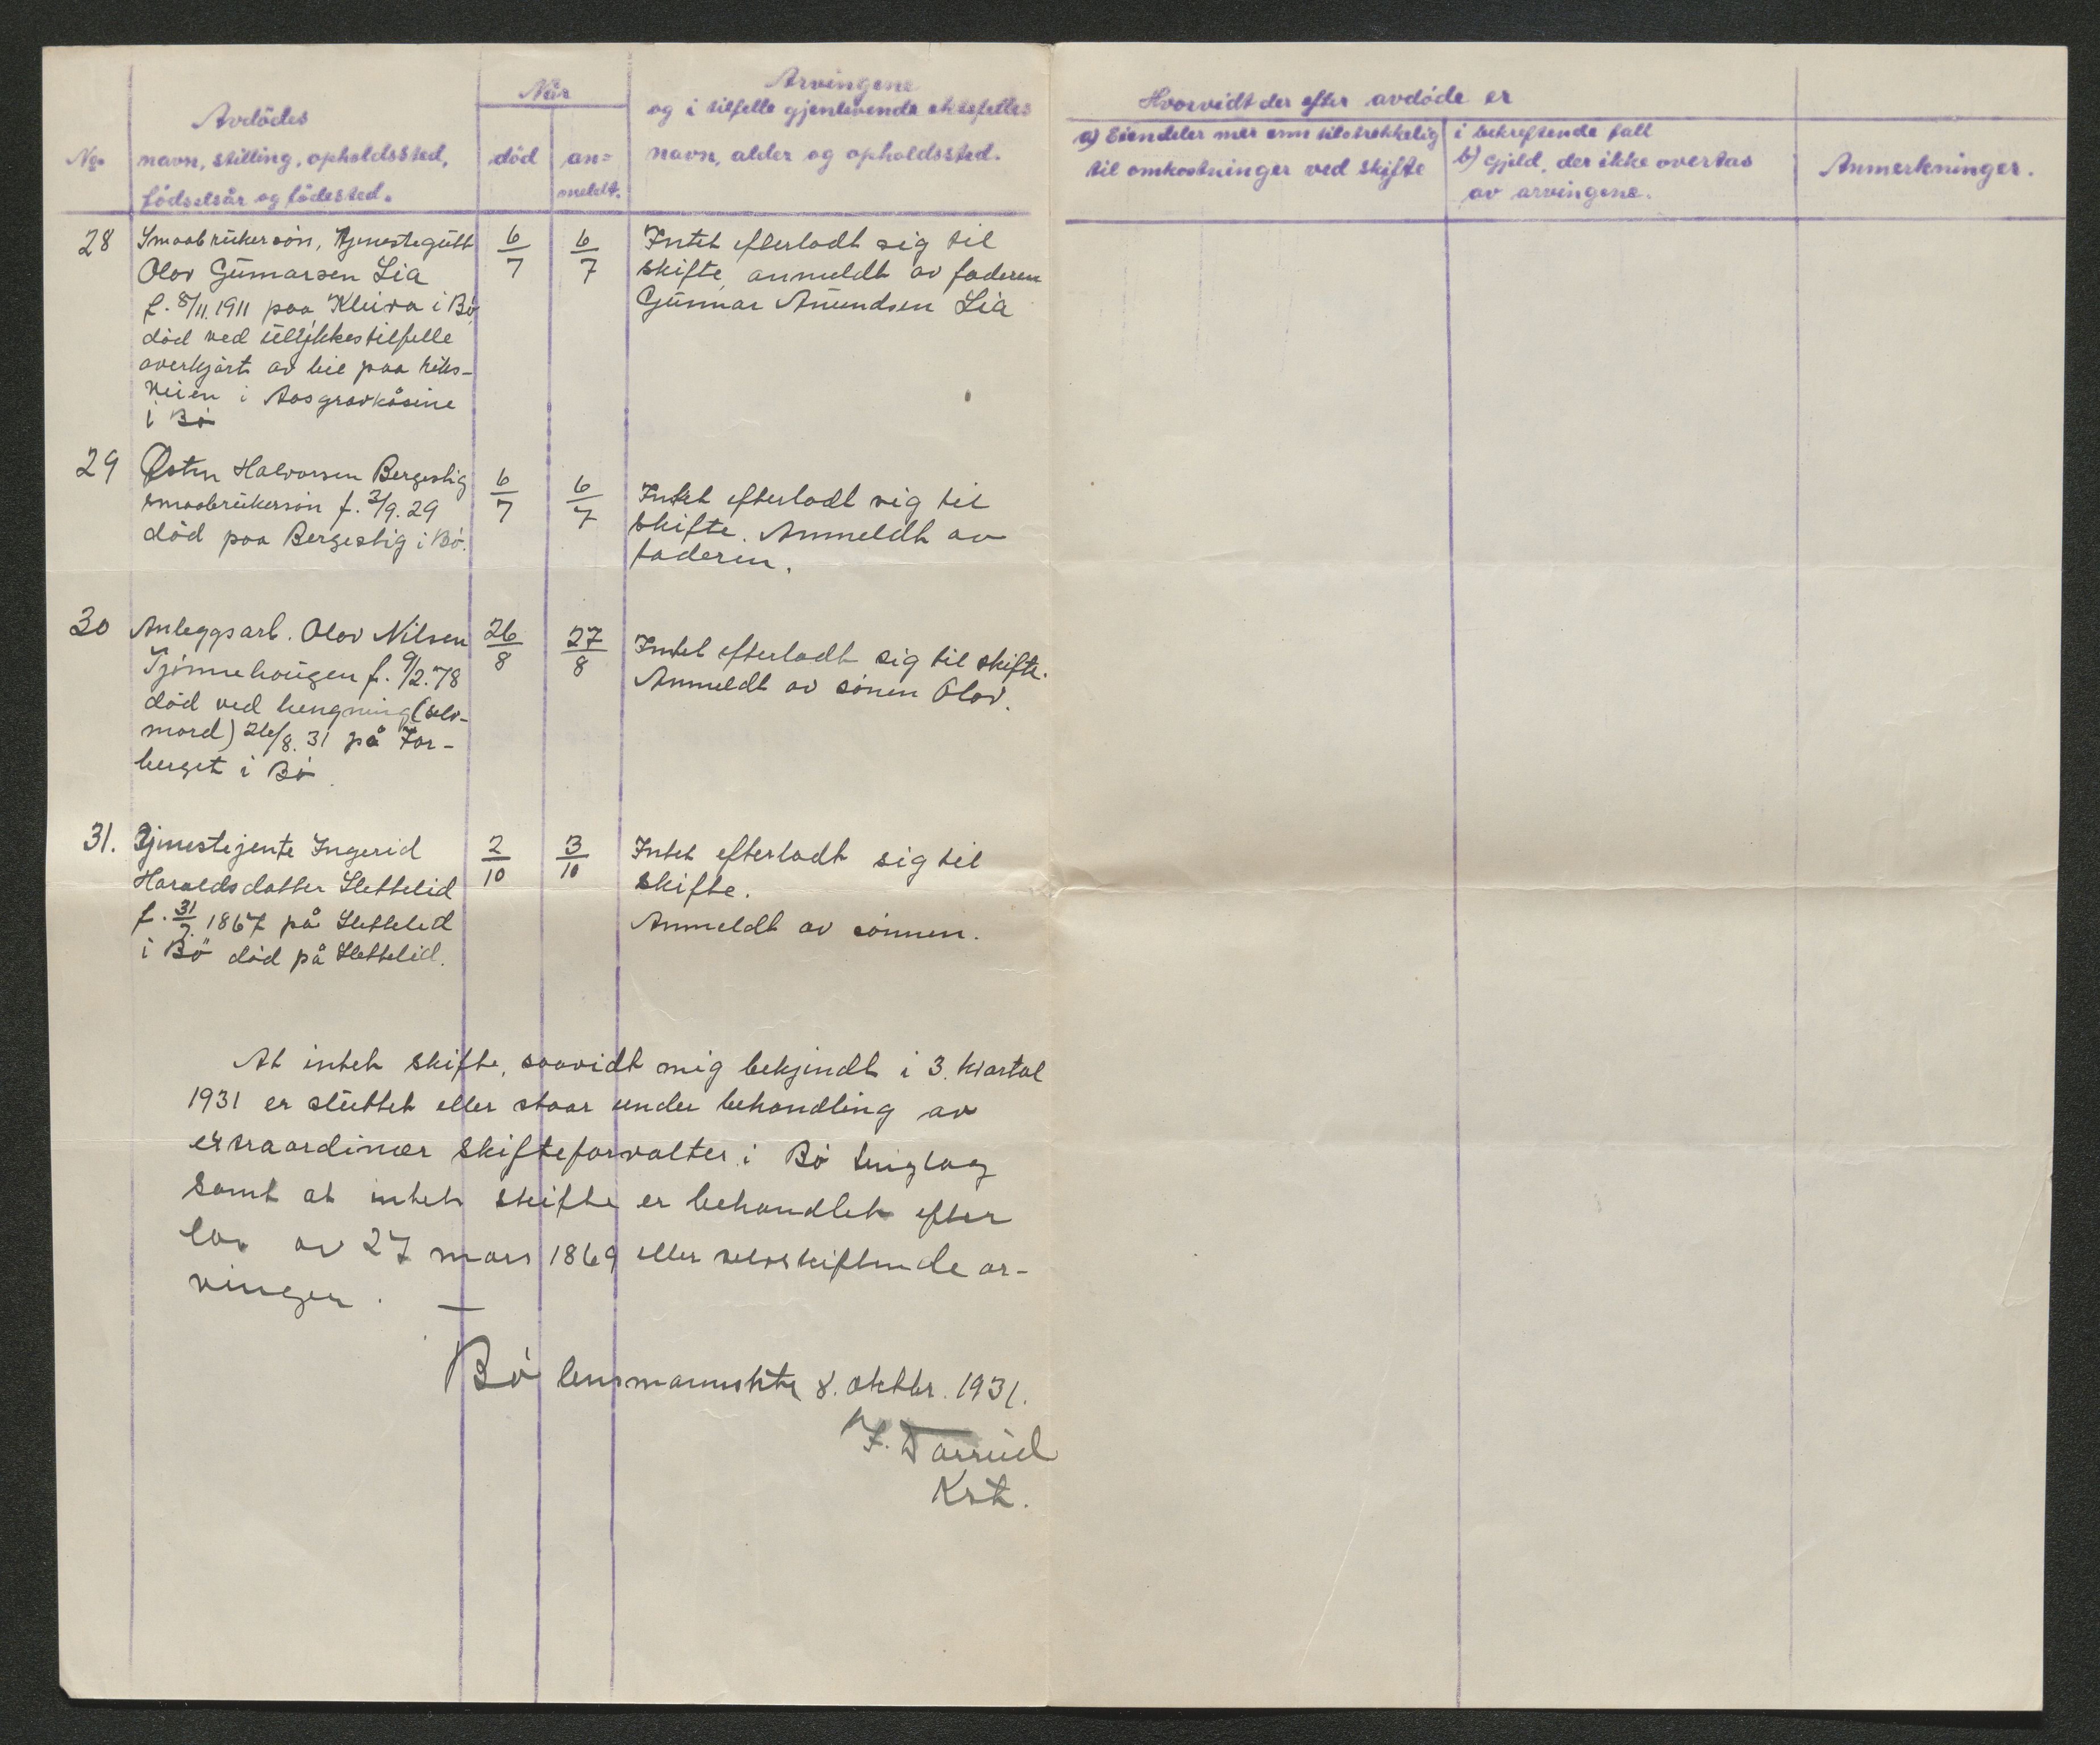 No.
Avdödes
navn, stilling, opholdssted,
födselsår og födested.
Når
död
an=
meldt.
Arvingene
og i tilfelle gjenlevende ektefelles
navn, alder og opholdssted.
Hvorvidt der efter avdöde er
a) Eiendeler mer enn tilstrekkelig
til omkostninger ved skifte
i bekreftende fall
b) gjeld, der ikke overtas
av arvingene.
Anmerkninger.
28
Smaabrukersön, tjenestegutt
Olav Gunnarsen Lia
f. 8/11. 1911 paa Kleiva i Bö
död ved ulykkestilfelle
overkjört av bil paa riks-
veien i Aasgravkåsine
i Bö
6/7
6/7
Intet efterladt sig til
skifte, anmeldt av faderen
Gunnar Amundsen Lia
29
Östen Halvorsen Bergestig
smaabrukersön f. 3/9. 29
död paa Bergestig i Bö.
6/7
6/7
Intet efterladt sig til
skifte. Anmeldt av
faderen.
30
Anleggsarb. Olav Nilsen
Tjönnehougen f. 9/2. 78
död ved hengning (selv-
mord) 26/8. 31 på For-
berget i Bö.
26/8
27/8
Intet efterladt sig til skifte.
Anmeldt av sönen Olav.
31.
Tjenestejente Ingerid
Haraldsdatter Slettelid
f. 31/7. 1867 på Slettelid
i Bö död på Slettelid.
2/10
3/10
Intet efterladt sig til
skifte.
Anmeldt av sönnen.
At intet skifte, saavidt mig bekjendt i 3. kvartal
1931 er sluttet eller staar under behandling av
extraordinær skifteforvalter i Bö tinglag
samt at intet skifte er behandlet efter
lov av 27 mars 1869 eller selvskiftende ar-
vinger. —
Bö lensmannsktr 8. oktbr. 1931.
Kst.